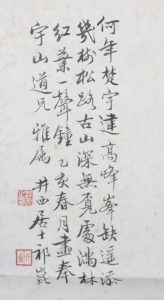 何年楚宇建高峰峯缺遥添
幾樹松路古山深無覓處满林
紅葉一聲鐘乙亥春月畫奉
宇山道兄雅属 井西居士祁崑